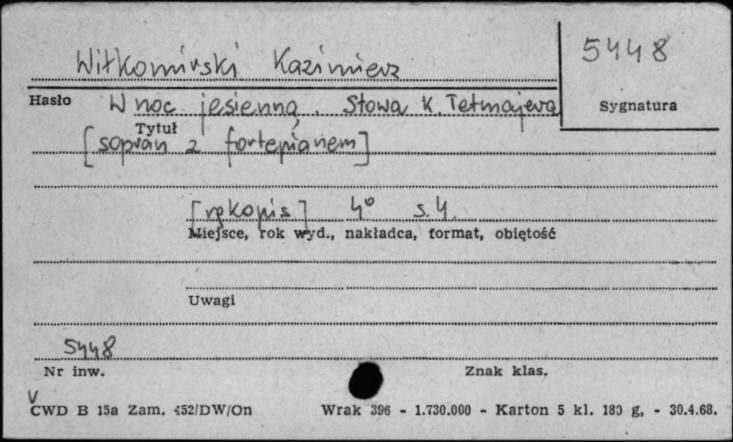 Wiłkomirski Kazimierz
5448
Hasło
Sygnatura
W noc jesienną. Słowa K. Tetmajera
Tytuł
[sopran z fortepianem]
[rękopis] 4° s. 4.
Miejsce, rok wyd., nakładca, format, obiętość
Uwagi
5448
Nr inw.
Znak klas.
V
CWD B 15a Zam. 452/DW/On
Wrak 396 - 1.730.000 - Karton 5 kl. 180 g, - 30.4.68.